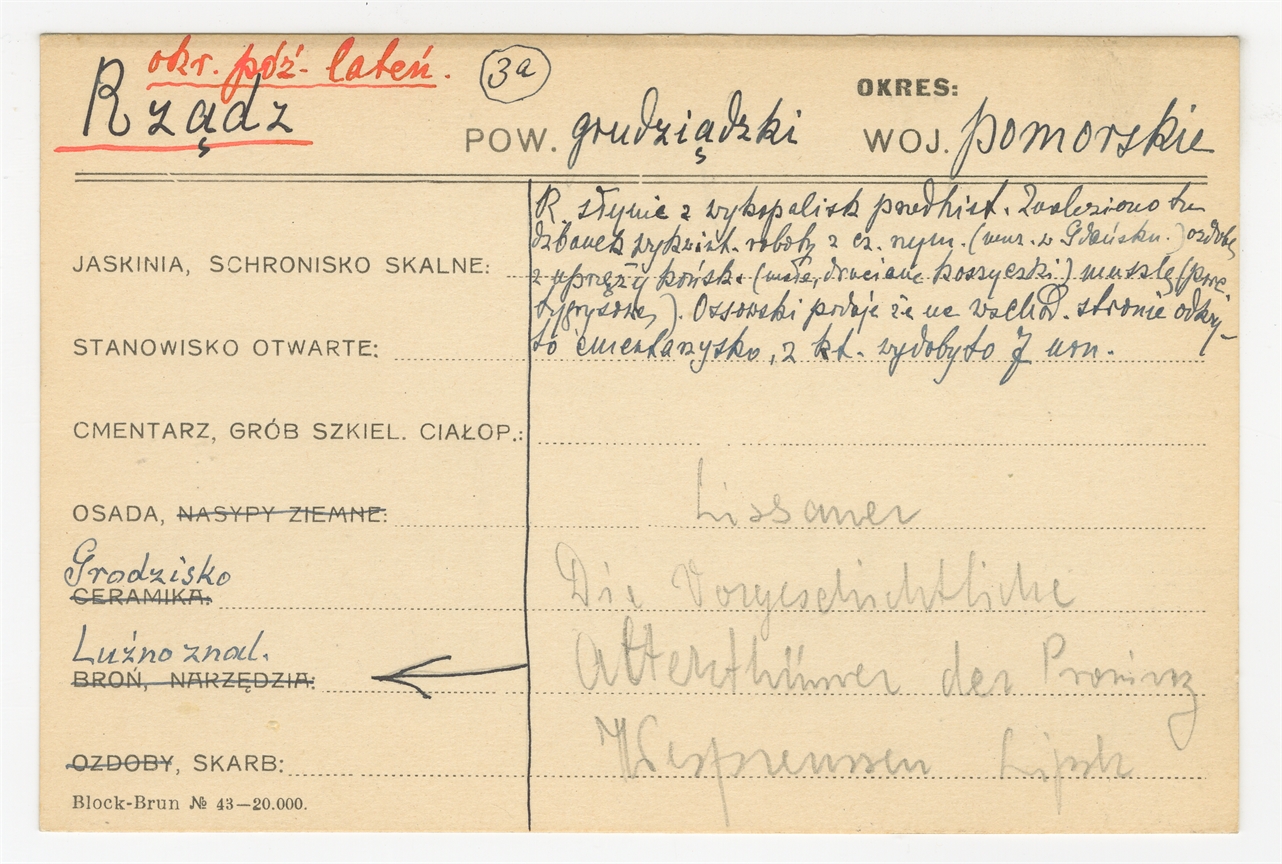 okr. póź. lateń.
3a
Rządz
OKRES:
POW. grudziądzki WOJ. pomorskie
R. słynie z wykopalisk przedhist. Znaleziono tu
dzbanek wykwint. roboty z cz. rzym. (muz. w Gdańsku.) ozdobę
z uprzęży końsk. (małe, druciane koszyczki) muszlę (
tygrysową). Ossowski podaje że na wschod. stronie odkry-
to cmentarzysko, z kt. wydobyto 7 urn.
JASKINIA, SCHRONISKO SKALNE:
STANOWISKO OTWARTE:
CMENTARZ, GRÓB SZKIEL. CIAŁOP.:
OSADA, NASYPY ZIEMNE:
Grodzisko
CERAMIKA:
Luźno znal.
BROŃ, NARZĘDZIA:
OZDOBY, SKARB:
Lissauer
Die Vorgeschichtliche
Alterthümer der Provinz
Westpreussen Lipsk
Block-Brun № 43—20.000.